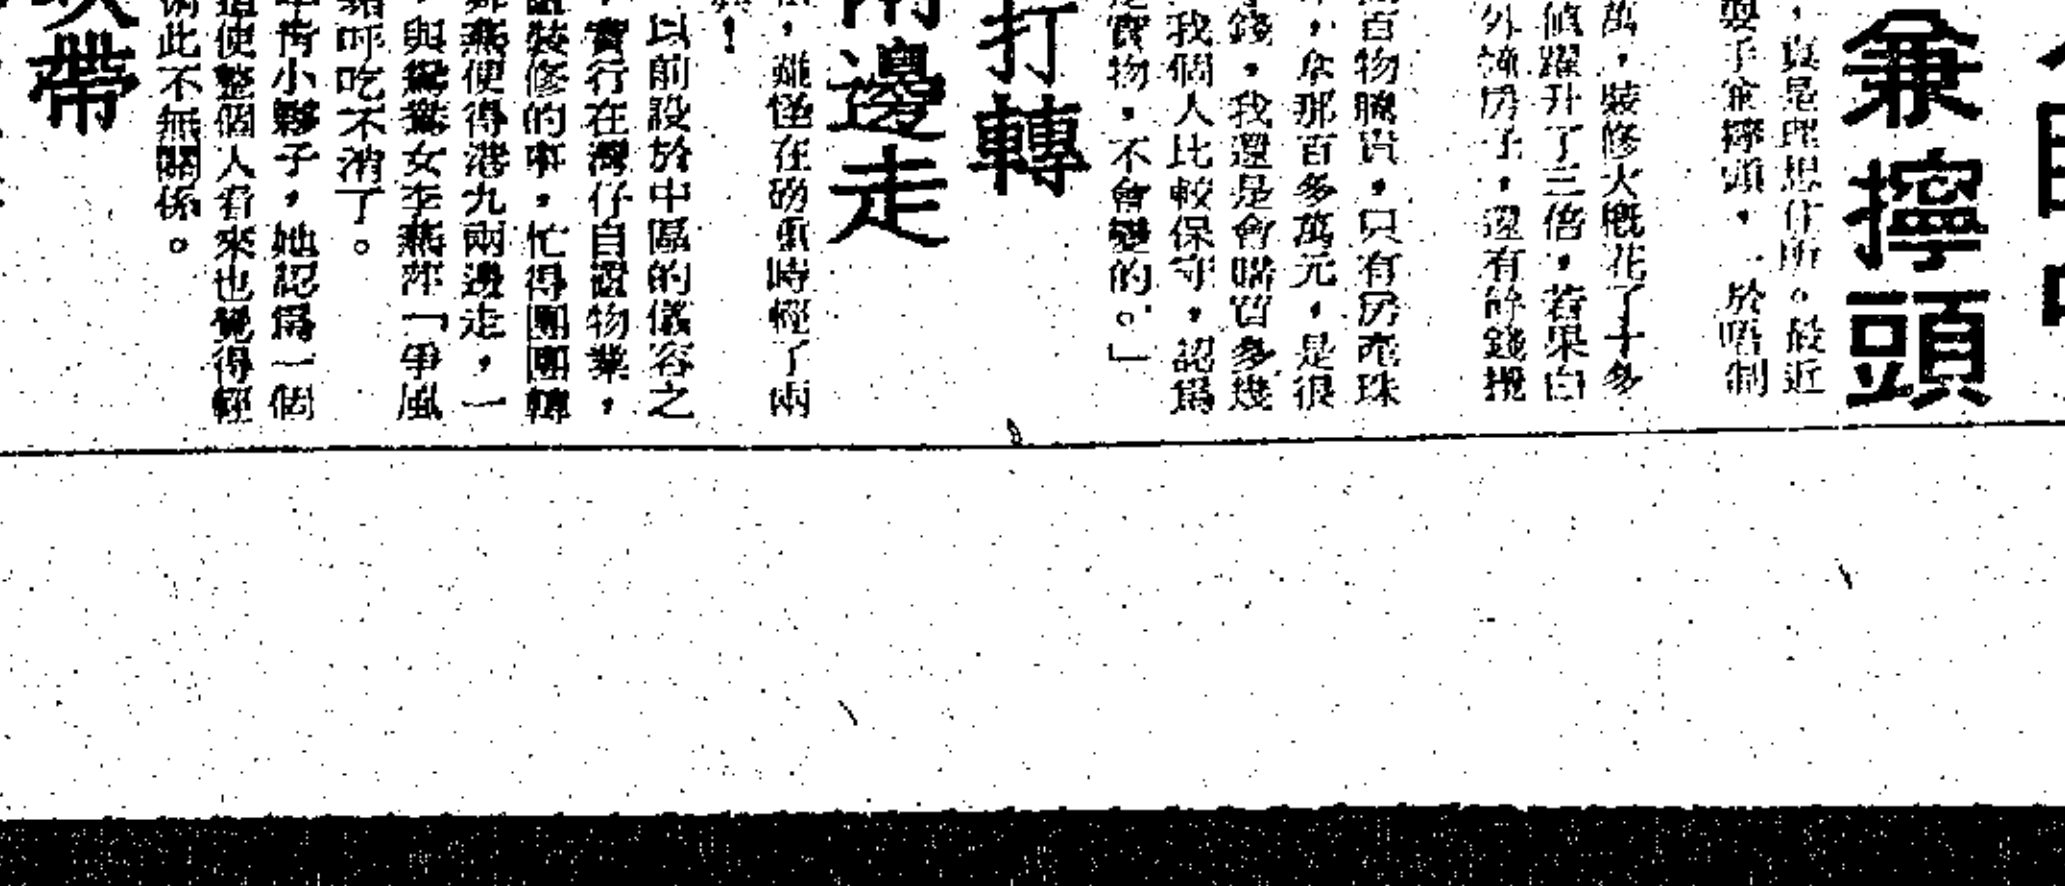 兼擰頭
，真是理想住所。最近
耍手兼擰頭，一於唔制
萬，裝修大概花了十多
值躍升了三倍，若果白
外幢房子，還有餘錢
百物騰貴，只有房產珠
，拿那百多萬元，是很
錢，我還是會購置多幾
我個人比較保守，認爲
實物，不會變的。」
打轉
兩邊走
，難怪在磅重時輕了兩
！
以前設於中區的儀容之
，實行在灣仔自置物業，
裝修的事，忙得團團轉
燕便得港九兩邊走，一
，與鴛鴦女李燕萍「爭風
呼吃不消了。
小夥子，她認爲一個
使整個人看來也覺得輕
此不無關係。
帶